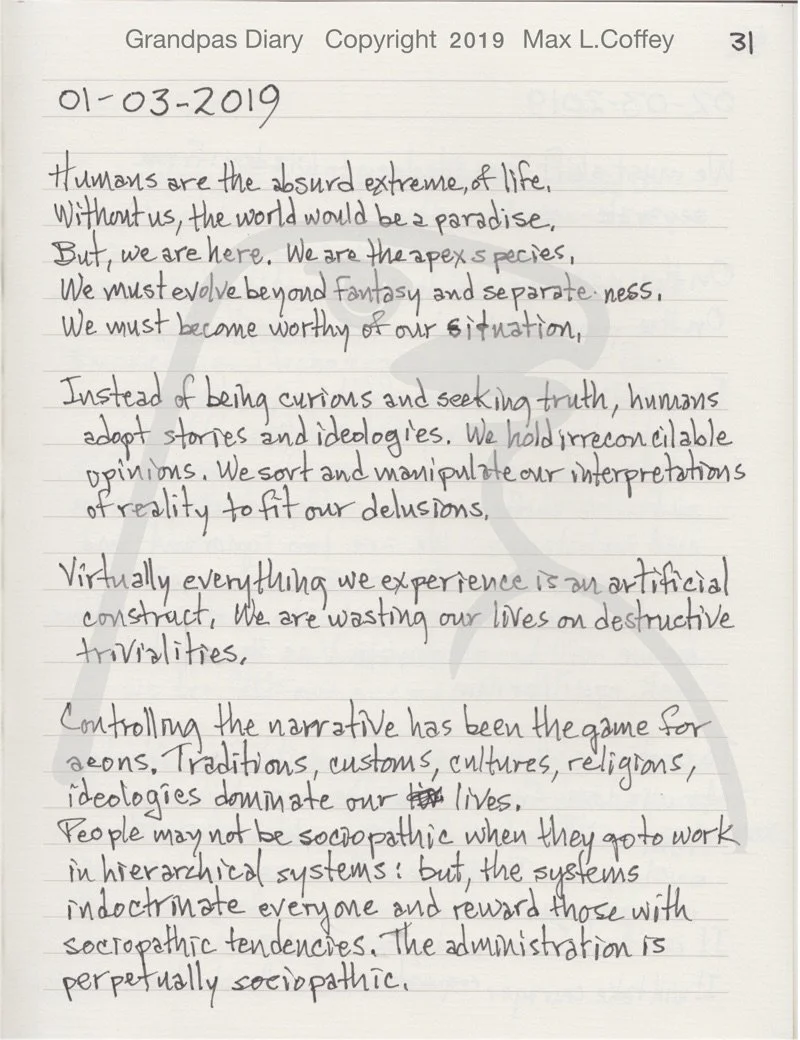 Grandpas Diary Copyright 2019 Max L.Coffey 31
01-03-2019
Humans are the absurd extreme, of life.
Without us, the world would be a paradise.
But, we are here. We are the apex species.
We must evolve beyond fantasy and separate-ness.
We must become worthy of our situation.
Instead of being curious and seeking truth, humans
adopt stories and ideologies. We hold irreconcilable
opinions. We sort and manipulate our interpretations
of reality to fit our delusions.
Virtually everything we experience is an artificial
construct. We are wasting our lives on destructive
trivialities.
Controlling the narrative has been the game for
aeons. Traditions, customs, cultures, religions,
ideologies dominate our lives.
People may not be sociopathic when they go to work
in hierarchical systems: but, the systems
indoctrinate everyone and reward those with
sociopathic tendencies. The administration is
perpetually sociopathic.